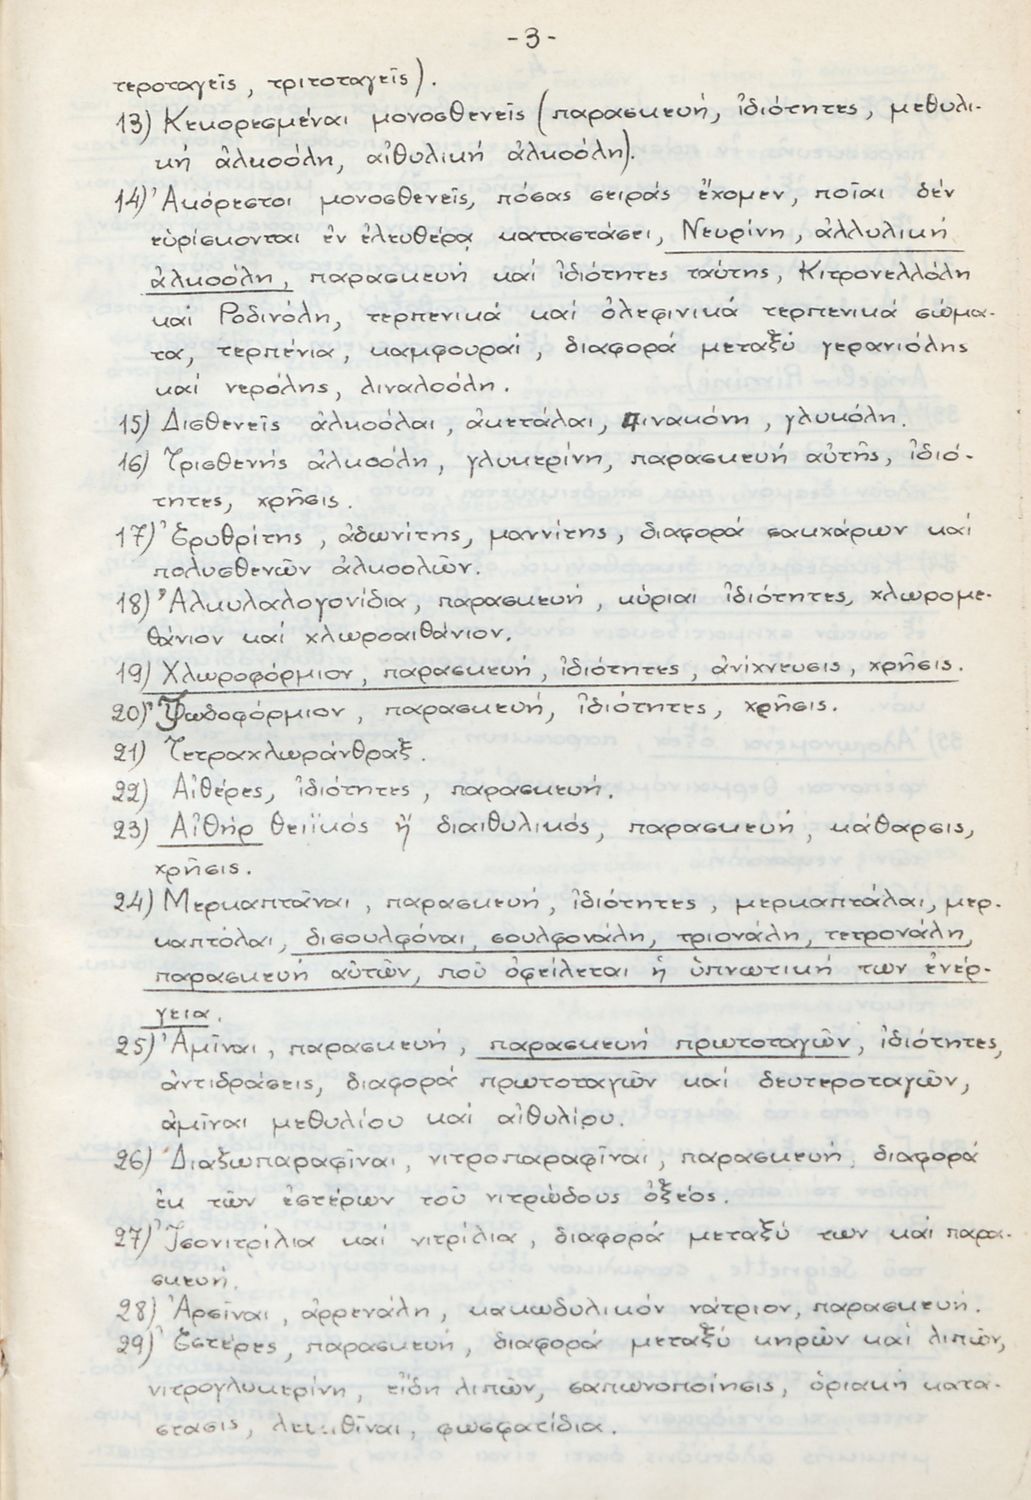 -3-
τεροταγεῖς, τριτοταγεῖς).
13) Κεκορεσμέναι μονοσθενεῖς (παρασκευή, ἰδιότητες, μεθυλι-
κή ἀλκοόλη, αἰθυλική ἀλκοόλη).
14) Ἀκόρεστοι μονοσθενεῖς, πόσας σειράς ἔχομεν, ποῖαι δέν
εὑρίσκονται ἐν ἐλευθέρᾳ καταστάσει, Νευρίνη, ἀλλυλική
ἀλκοόλη, παρασκευή καί ἰδιότητες ταύτης, Κιτρονελλόλη
καί Ροδινόλη, τερπενικά καί ὀλεφινικά τερπενικά σώμα-
τα, τερπένια, καμφουραί, διαφορά μεταξύ γερανιόλης
καί νερόλης, λιναλοόλη.
15) Δισθενεῖς ἀλκοόλαι, ἀκετάλαι, πινακόνη, γλυκόλη.
16) Τρισθενής ἀλκοόλη, γλυκερίνη, παρασκευή αὐτῆς, ἰδιό-
τητες, χρῆσις.
17) Ἐρυθρίτης, ἀδωνίτης, μαννίτης, διαφορά σακχάρων καί
πολυσθενῶν ἀλκοολῶν.
18) Ἀλκυλαλογονίδια, παρασκευή, κύριαι ἰδιότητες, χλωρομε-
θάνιον καί χλωροαιθάνιον.
19) Χλωροφόρμιον, παρασκευή, ἰδιότητες, ἀνίχνευσις, χρῆσις.
20) Ἰωδοφόρμιον, παρασκευή, ἰδιότητες, χρῆσις.
21) Τετραχλωράνθραξ.
22) Αἰθέρες, ἰδιότητες, παρασκευή.
23) Αἰθήρ θειϊκός ἤ διαιθυλικός, παρασκευή, κάθαρσις,
χρῆσις.
24) Μερκαπτᾶναι, παρασκευή, ἰδιότητες, μερκαπτάλαι, μερ-
καπτόλαι, δισουλφόναι, σουλφονάλη, τριονάλη, τετρονάλη,
παρασκευή αὐτῶν, ποῦ ὀφείλεται ἡ ὑπνωτική των ἐνέρ-
γεια.
25) Ἀμῖναι, παρασκευή, παρασκευή πρωτοταγῶν, ἰδιότητες,
ἀντιδράσεις, διαφορά πρωτοταγῶν καί δευτεροταγῶν,
ἀμῖναι μεθυλίου καί αἰθυλίου.
26) Διαξωπαραφῖναι, νιτροπαραφῖναι, παρασκευή, διαφορά
ἐκ τῶν ἐστέρων τοῦ νιτρώδους ὀξέος.
27) Ἰσονιτρίλια καί νιτρίλια, διαφορά μεταξύ των καί παρα-
σκευή.
28) Ἀρσῖναι, ἀρρενάλη, κακωδυλικόν νάτριον, παρασκευή.
29) Ἐστέρες, παρασκευή, διαφορά μεταξύ κηρῶν καί λιπῶν,
νιτρογλυκερίνη, εἴδη λιπῶν, σαπωνοποίησις, ὁριακή κατα-
στασις, φωσφατίδια.